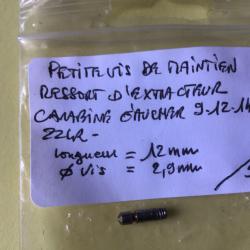 PETITE VIS DE MAINTIEN
RESSORT D'EXTRACTEUR
CARABINE GAUCHER 9-12-14
22LR-
longueur = 12mm
Ø VIS = 2,9mm